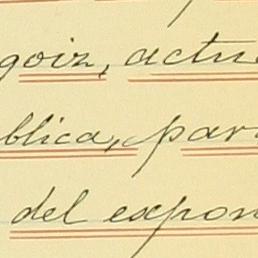 goiz, actu
blica, par
del expon